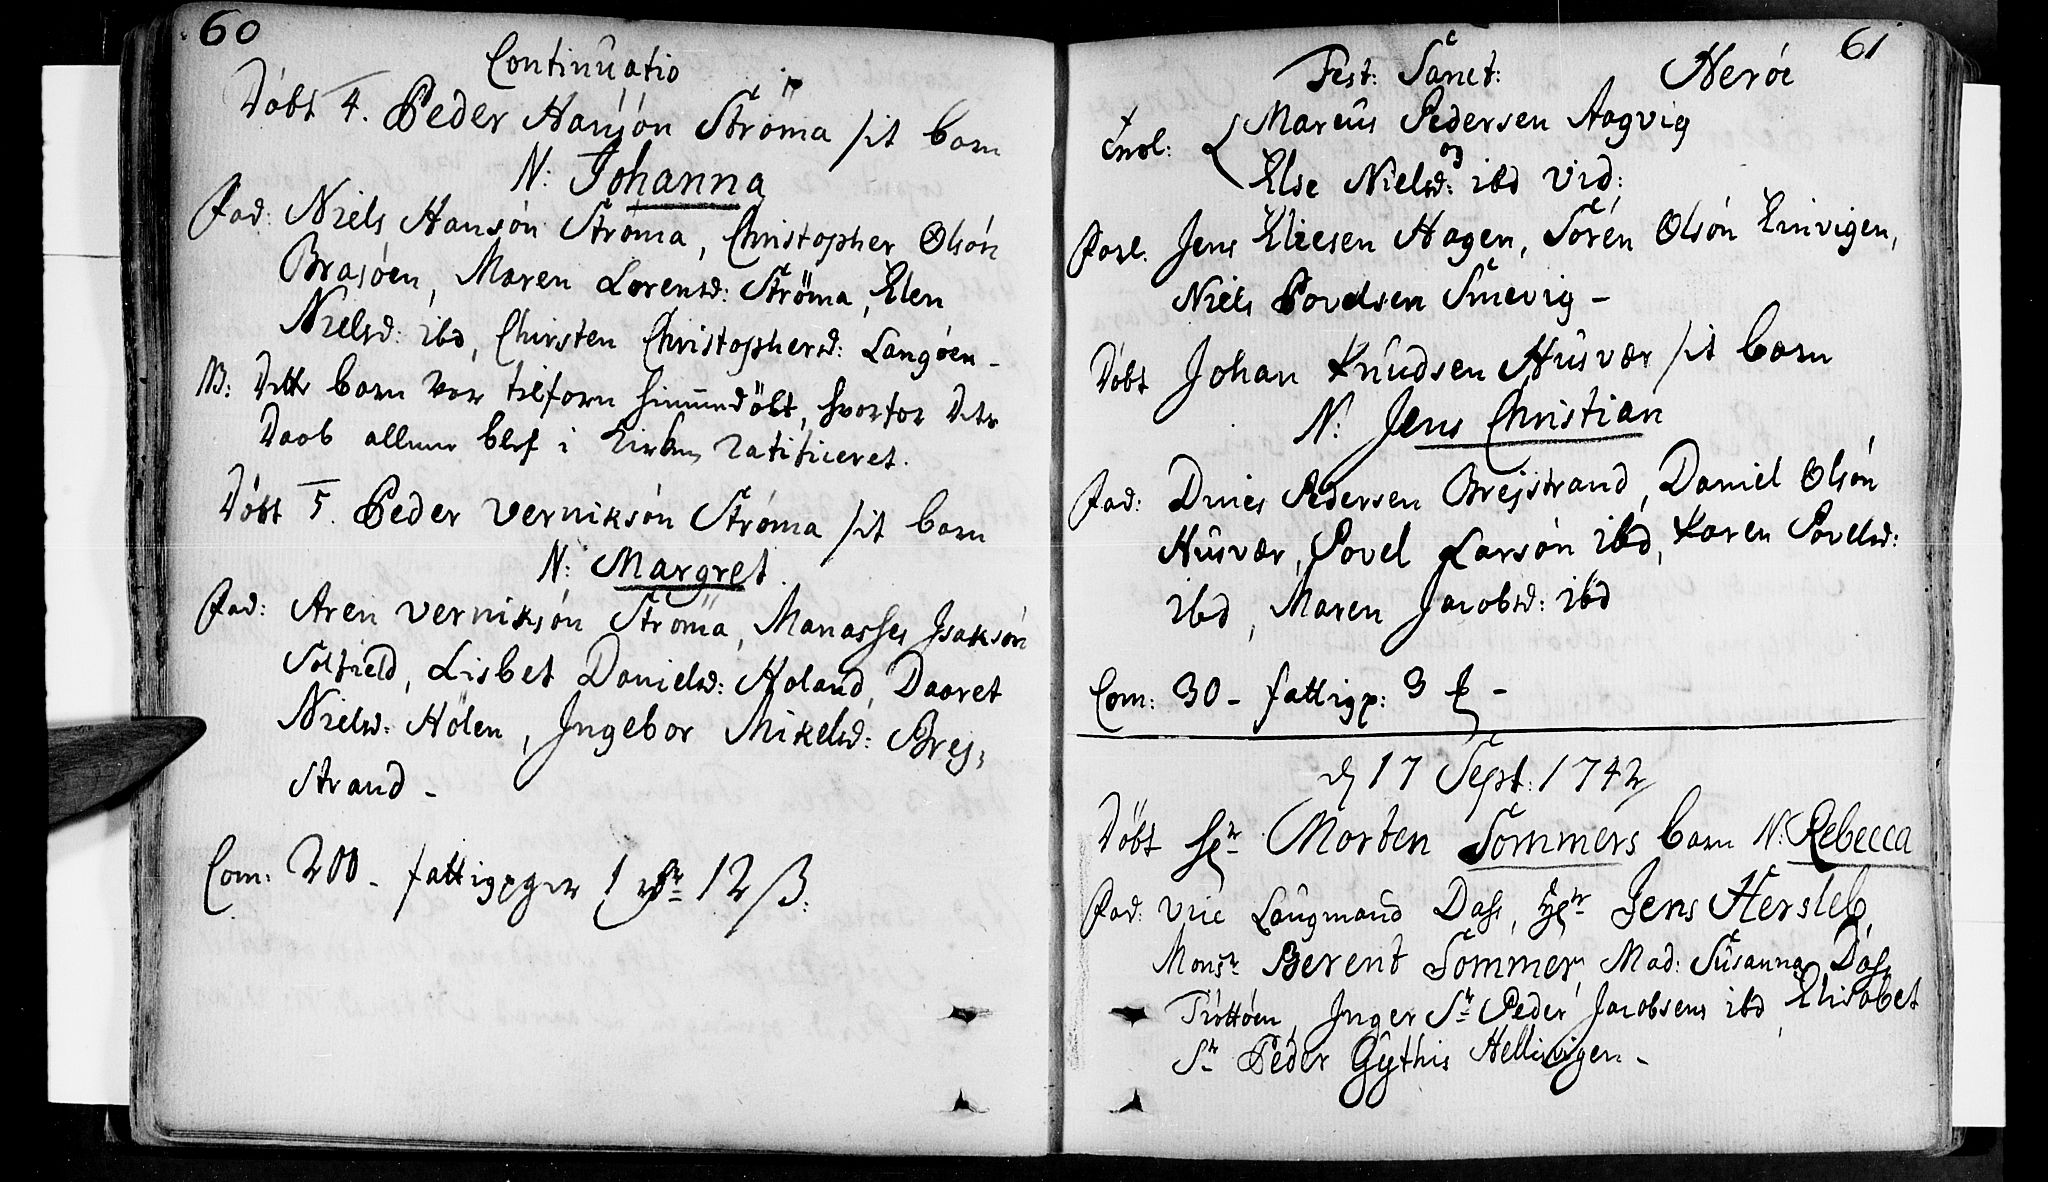 60
Continuatio
Döbt 4. Peder Hansón Ströma sit barn
N: Johanna
Fad: Niels Hansón Ströma, Christopher Olsón
Brasöen, Maren Lorensd: Ströma, Elen
Nielsd: ibd, Chirsten Christophersd: Langöen -
NB: Dette barn var tilforn hiemmedöbt, hvorfor dets
Daab alleene blef i Kirken ratificeret.
Döbt 5. Peder Verniksón Ströma sit barn
N: Margret.
Fad: Aren Verniksón Ströma, Manasses Isaksón
Solfield, Lisbet Danielsd: Holand, Daaret
Nielsd: Hölen, Ingebor Mikelsd: Brej,
strand -
Com: 200 - fattigpger 1 12 ß:
61
Fest: Sanct: Heröe
Marcus Pedersen Aagvig
Trol: og
Else Nielsd: ibd vid:
Forl. Jens Eliesen Hagen, Sörén Olsón Einvigen,
Niels Povelsen Smevig -
Döbt Johan Knudsen Husvær sit barn
N: Jens Christian
Fad: Dines Pedersen Brejstrand, Daniel Olsón
Husvær, Povel Larsón ibd, Karen Povelsd:
ibd, Maren Jacobsd: ibd
Com: 30 - fattigp: 3 ß -
d 17 Sept: 1742
Döbt Hr Morten Sommers barn N: Rebecca
Fad: Vice Laugmand Dass, Hr Jens Hersleb,
Monsr Berent Sommer, Mad: Susanna Dass
Tiöttöen, Inger Sr Peder Jacobsens ibd, Elisabet
Sr Peder Gythis Hellisvigen -